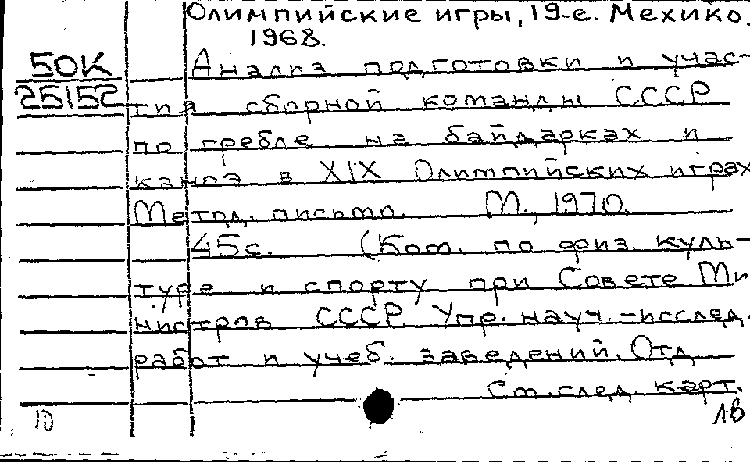 Олимпийские игры, 19-е. Мехико.
1968.
50К Анализ подготовки и учас-
25152 тия сборной команды СССР
по гребле на байдарках и
каноэ в XIX Олимпийских играх
Метод. письмо. М., 1970.
45с. (Ком. по физ. куль-
туре и спорту при Совете Ми
нистров СССР. Упр. науч.-исслед.
работ и учеб. заведений. Отд
См. след. карт.
ЛВ